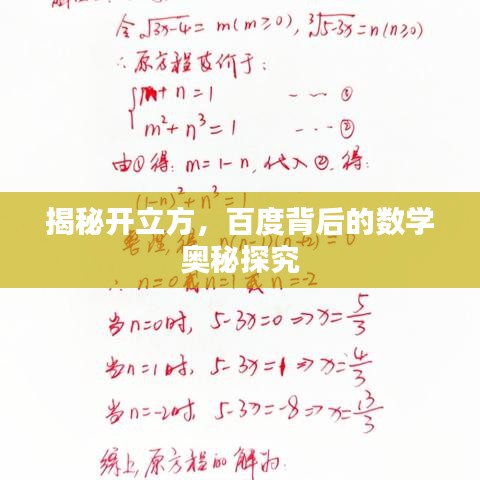 令√(3x-4) = m(m≥0), ∛(5-3x) = n(n≥0)
∴原方程等价于:
m+n=1 -- ①
m²+n³=1 --- ②
由①得: m=1-n, 代入②, 得:
(1-n)²+n³=1
揭秘开立方，百度背后的数学
奥秘探究
整理, 得 n(n-1)(n+2)=0
∴ n=0或n=1或n=-2
当n=0时, 5-3x=0⇒x=5/3
当n=1时, 5-3x=1⇒x=4/3
当n=-2时, 5-3x=-8⇒x=13/3
综上,原方程的解为: